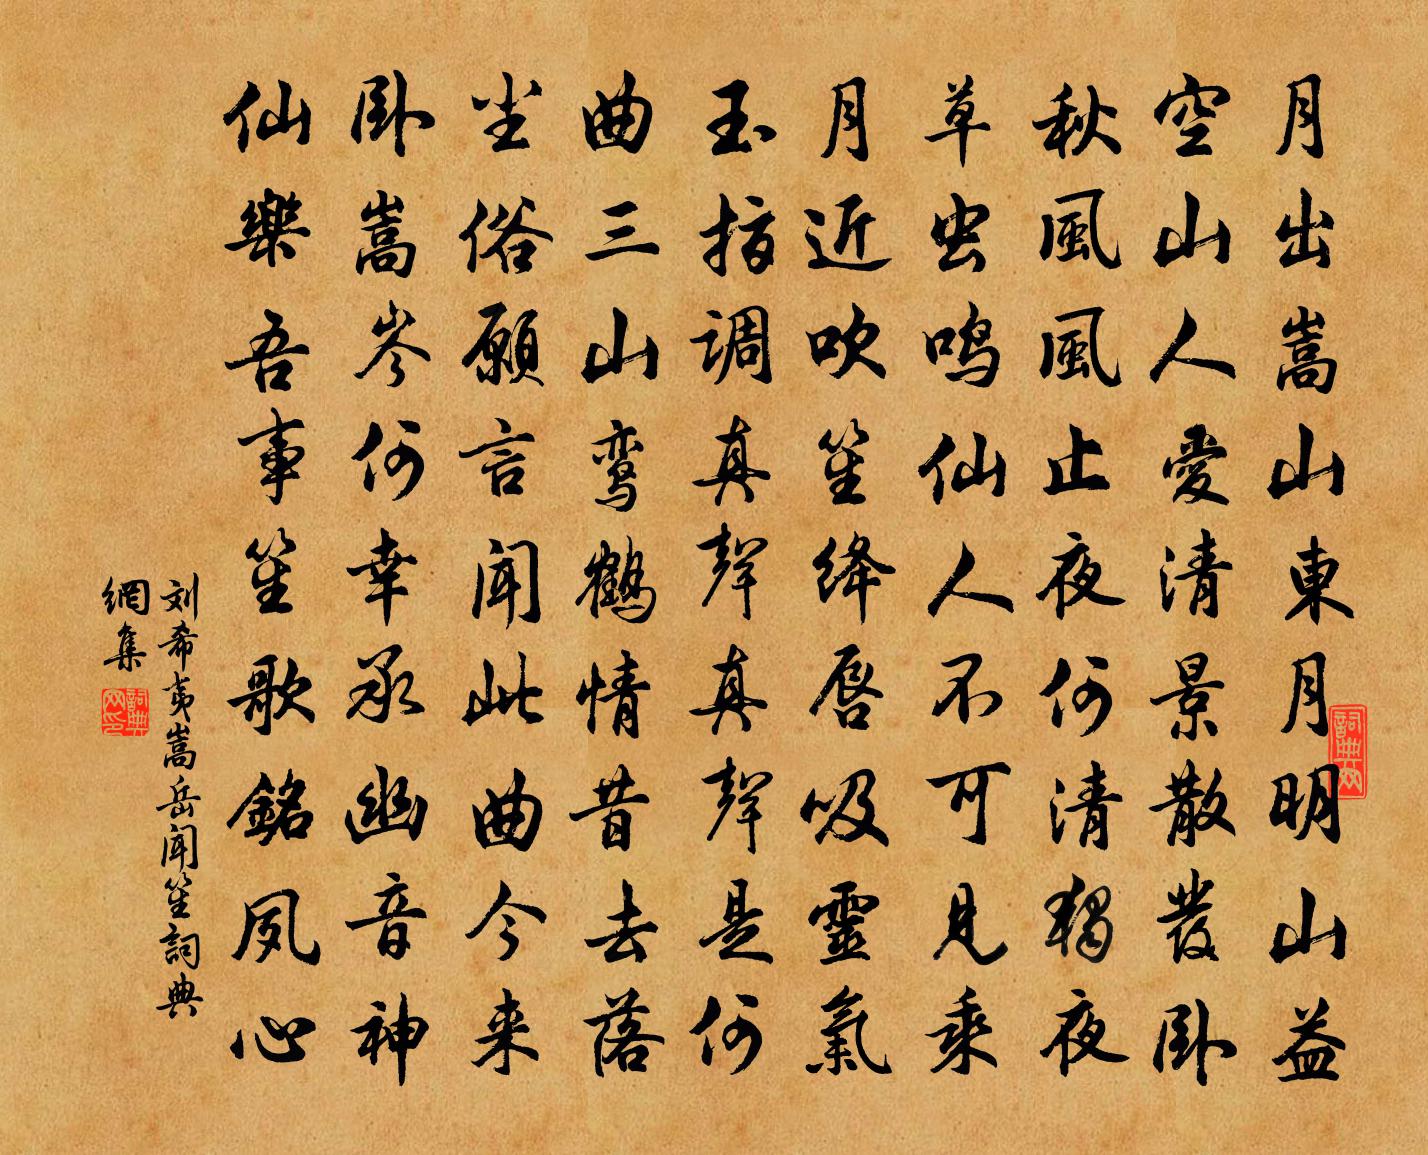 月出嵩山東月明山益
空山人愛清景散發卧
秋風風止夜何清獨夜
草虫鳴仙人不可見乘
月近吹笙絳唇吸靈氣
玉指調真聲真聲是何
曲三山鸾鶴情昔去落
坐俗願言聞此曲今来
卧嵩岑何幸承幽音神
仙樂吾事笙歌銘夙心
刘希夷嵩岳聞笙詞典
網集
詞典網
詞典網印